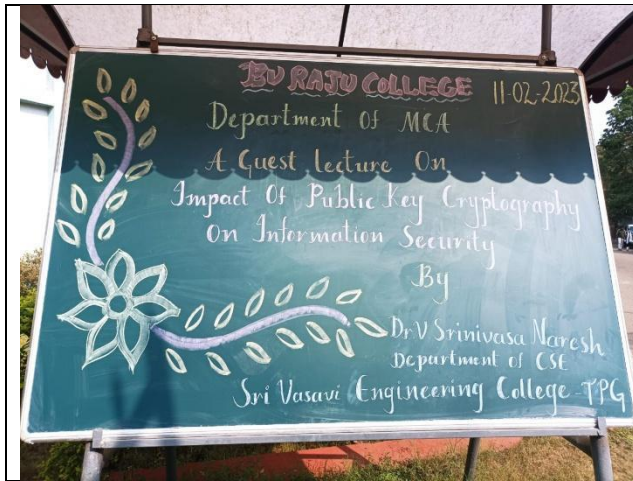 BV RAJU COLLEGE
11-02-2023
Department Of MCA
A Guest lecture On
Impact Of Public Key Cryptography
On Information Security
By
Dr V Srinivasa Naresh
Department of CSE
Sri Vasavi Engineering College-TPG